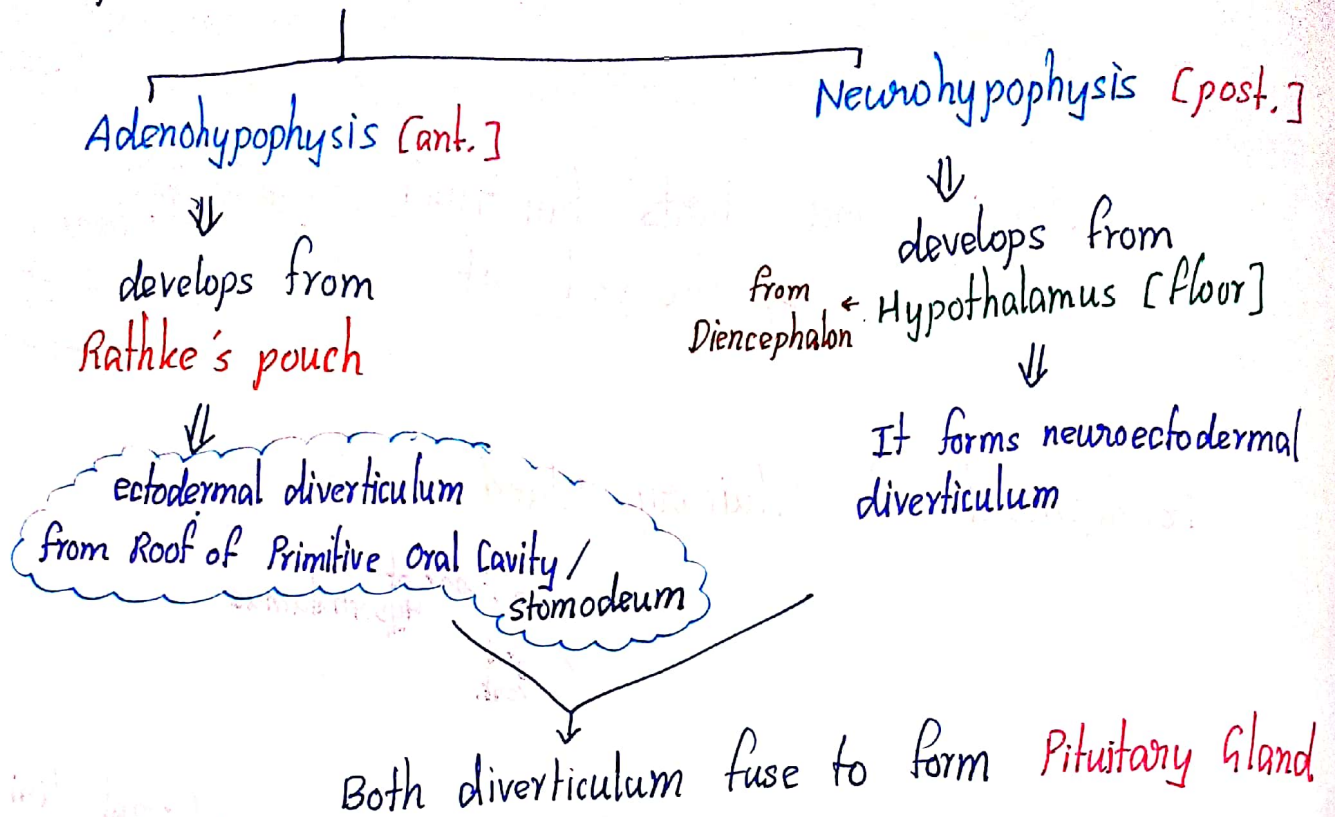 Adenohypophysis [ant.]
develops from
Rathke's pouch
ectodermal diverticulum
from Roof of Primitive Oral Cavity/
stomodeum
Neurohypophysis [post.]
develops from
Hypothalamus [floor]
from
Diencephalon
It forms neuroectodermal
diverticulum
Both diverticulum fuse to form Pituitary Gland